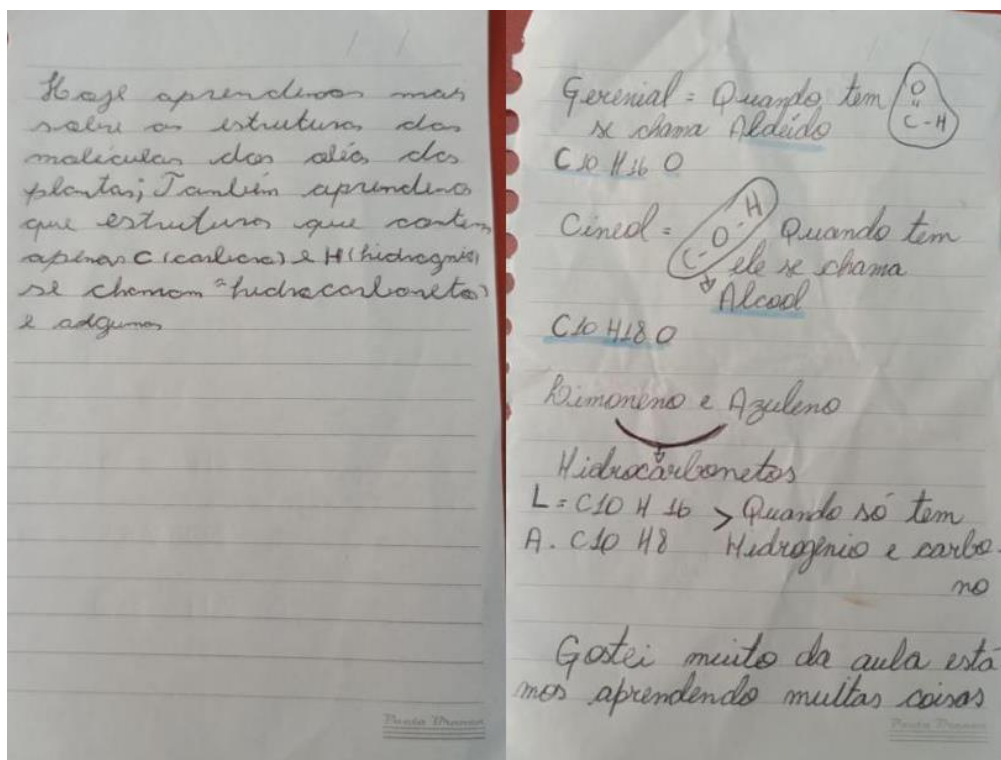 Hoje aprendemos mas
sobre as estrutura das
moléculas dos oléos das
plantas; Também aprendemos
que estruturas que contem
apenas C (carbono) e H (hidrognio)
se chamam "hidrocarbonetos"
e adgumas
Gerenial = Quando tem
O
C - H
se chama Aldeído
C10 H16 O
Cineol = C - O - H Quando tem
ele se chama
Alcool
C10 H18 O
Limoneno e Azuleno
Hidrocarbonetos
L = C10 H 16 > Quando só tem
A . C10 H8 Hidrogênio e carbo-
no
Gostei muito da aula está
mos aprendendo muitas coisas